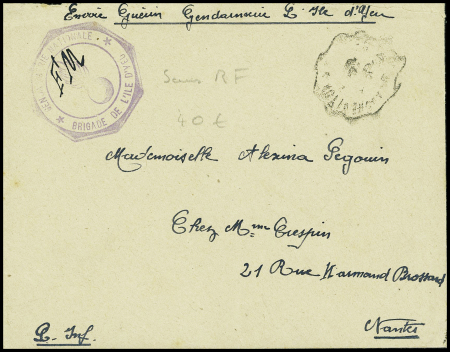 Envoie Guérin Gendarmerie P. Ile d'Yeu
GENDARMERIE NATIONALE
BRIGADE DE L'ILE D'YEU
FM
Sans RF
40 €
Mademoiselle Alexina Pegouin
Chez Mme Crespin
21 Rue Harmand Brossard
Nantes
P. Inf.